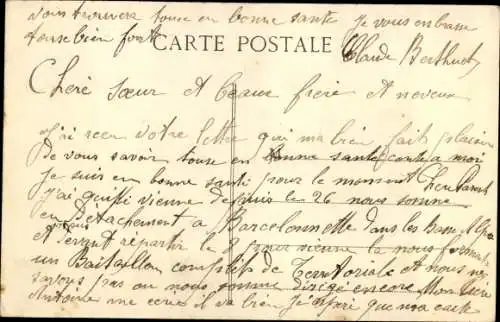 vous trouvera touse en bonne sante je vous embrasse
touse bien fort
CARTE POSTALE
Claude Berthuet
Cheré sœur et beaux frère et neveux
j'ai recu votre lettre qui ma bien fait plaisir
de vous savoir touse en bonne santé conte a moi
je suis en bonne santé pour le moment
j'ai quitté vienne depuis le 26 nous somme
en Détachement a Barcelonnette dans les Basse Alpes
et devont repartir le 8 pour vienne la nous formont
un Bataillon complét de Territoriale et nous ne
savons pas ou nous somme dirigé encore Mon
Antoine me ecrit il va bien J'éspère que ma carte